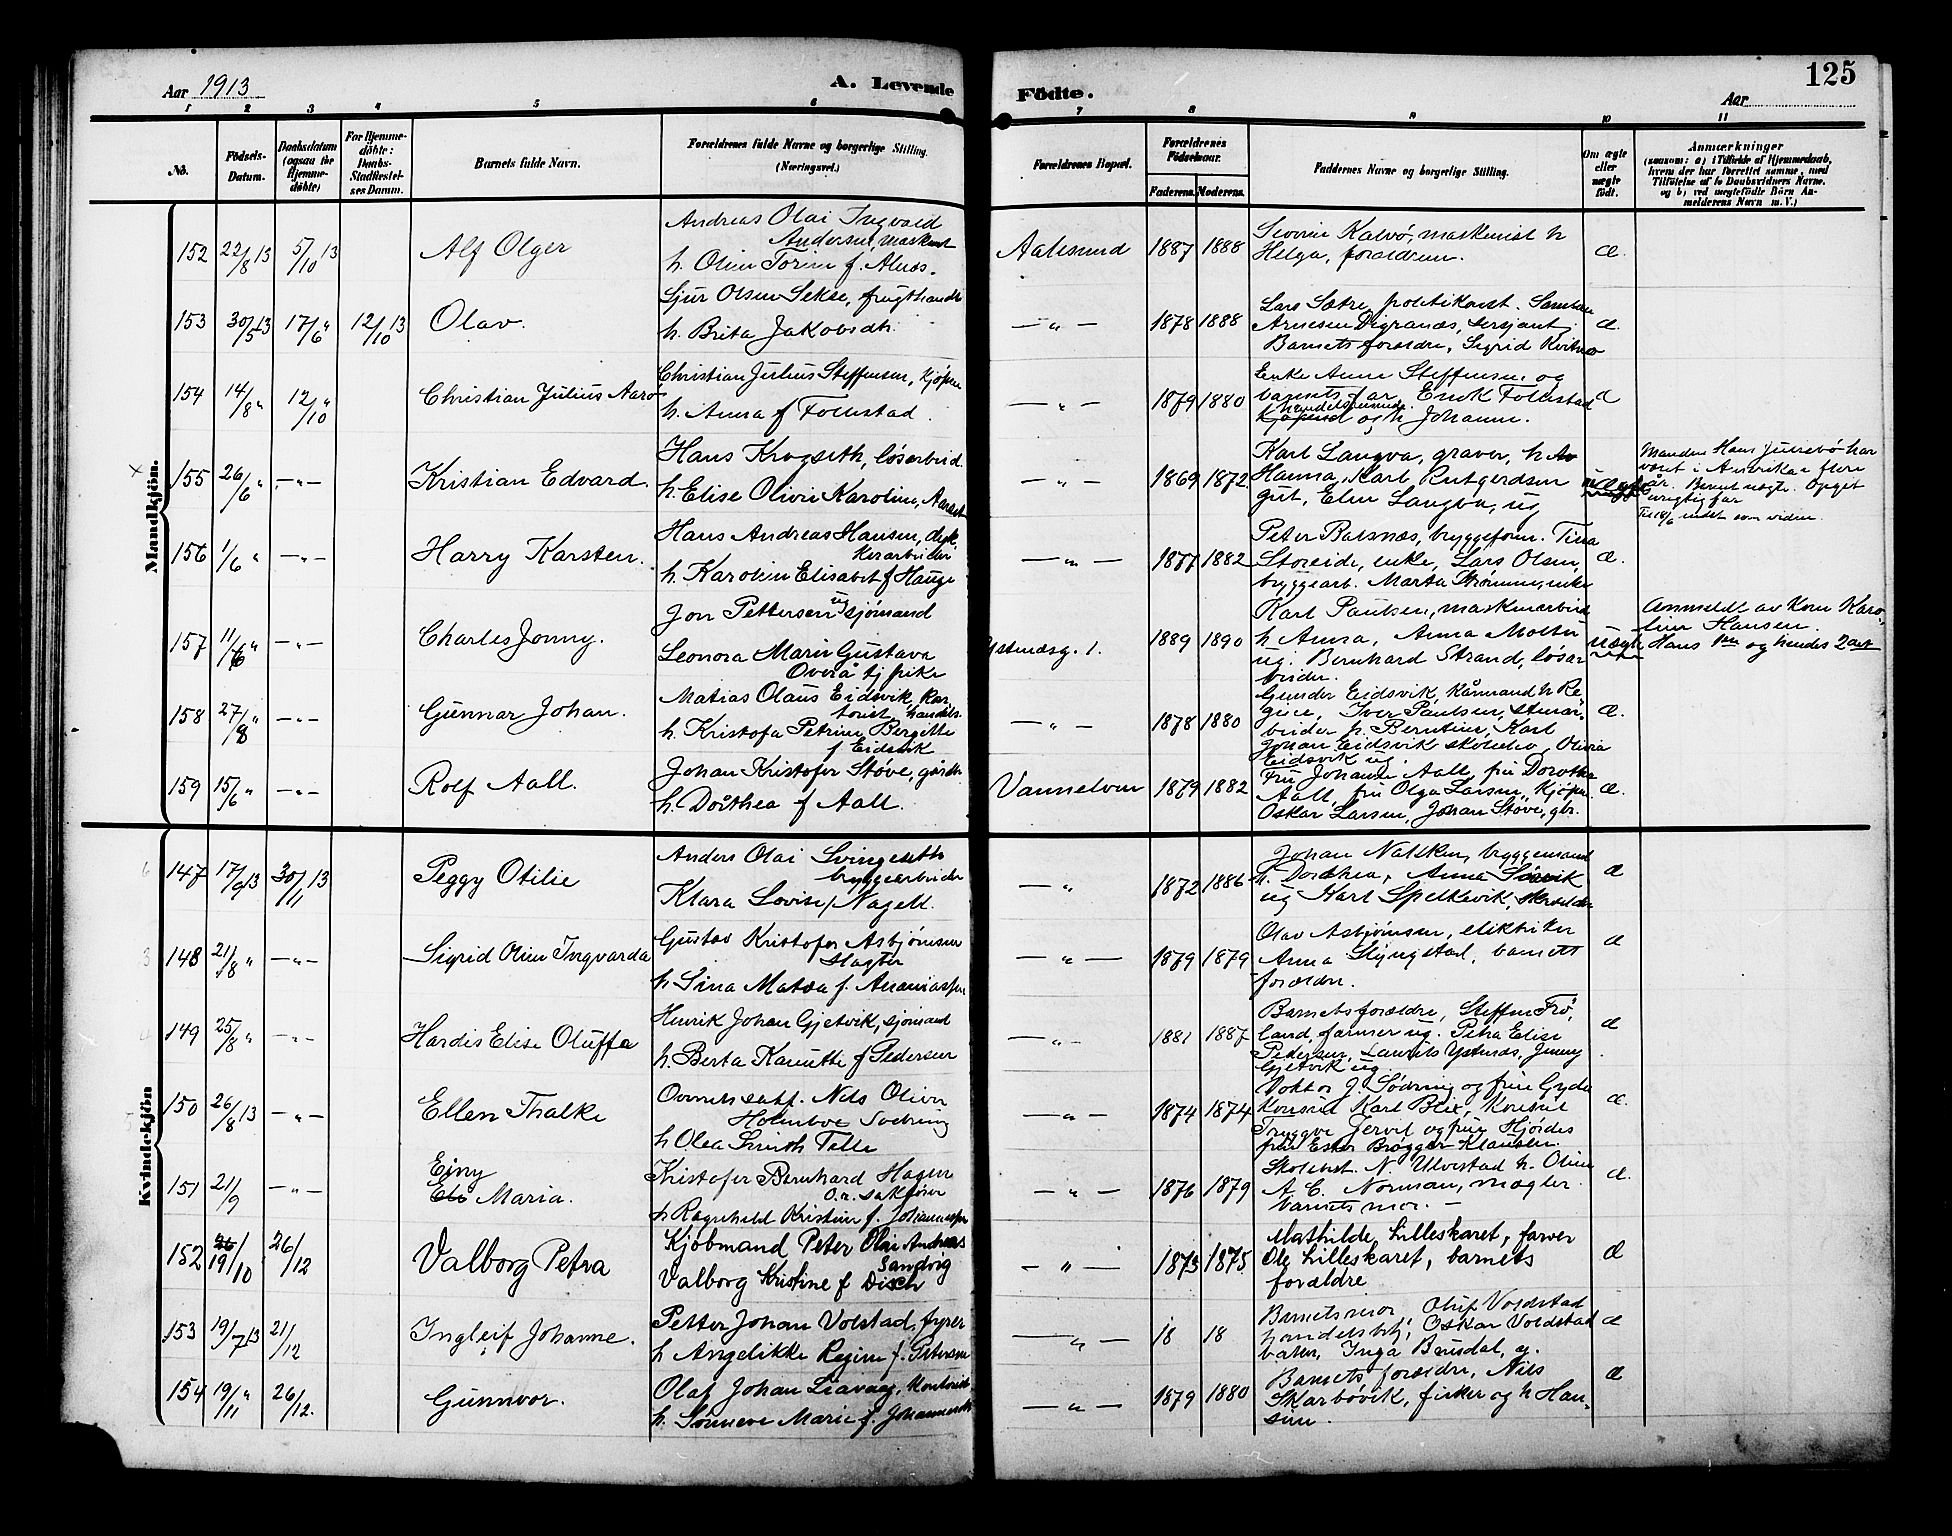 Aar 1913
A. Levende
Födte.
Aar
125
1 2 3 4 5 6 7 8 9 10 11
No.
Födsels-Datum.
Daabsdatum (ogsaa for Hjemme-döbte)
For Hjemme-döbte: Daabs-Stadfæstel-ses Datum.
Barnets fulde Navn.
Forældrenes fulde Navne og borgerlige Stilling. (Næringsvei.)
Forældrenes Bopæl.
Forældrenes Födselsaar.
Faderens. Moderens.
Faddernes Navne og borgerlige Stilling.
Om ægte eller uægte födt.
Anmærkninger
(saasom: a) i Tilfælde af Hjemmedaab, hvem der har forrettet samme, med Tilföielse af to Daabsvidners Navne, og b) ved uægtefödte Börn Anmelderens Navn m. V.)
Mandkjön.
152 22/8 13 5/10 13 Alf Olger
Andreas Olai Ingvald
Andersen, maskinist
h. Oline Torine f. Alnes.
Aalesund 1887 1888
Severin Kalvø, maskinist h
Helga, forældrene.
Æ.
153 30/5 13 17/6 " 12/10 13 Olav.
Sjur Olsen Sekse, frugthandl.
h. Brita Jakobsdtr.
— " — 1878 1888
Lars Sætre, politikonst.
Arnesen Digranæs, sersjant,
Barnets forældre, Sigrid
Æ
154 14/8 " 12/10 " Christian Julius Aarø
Christian Julius Steffensen, kjøpm
h. Anna f Follestad.
— " — 1879 1880
Enke Anne Steffensen og
barnets far Enok Follestad
handelsreisende
kjøpmand og h Johanne.
Æ
x
155 26/6 " — " — Kristian Edvard.
Hans Krogseth, løsarbeid.
h. Elise Olivie Karoline,
— " — 1869 1872
Karl Langva, graver, h
Hanna, Karl Rutgerdsen
gut, Elen Langva, ug
uægte
Manden Hans Julebø har
vært i Amerika i flere
år. Barnet uægte. Opgit
urigtig far
156 1/6 " — " — Harry Karsten.
Hans Andreas Hansen, dyk
kerarbeider
h. Karoline Elisabet f Hauge
— " — 1877 1882
Peter Batsnæs, bryggeform. Tina
Storeide, enke, Lars Olsen,
bryggearb. Marta Strømme, enke
Æ.
157 11/6 " — " — Charles Jonny.
Jon Pettersen ug sjømand
Leonora Marie Gustava
Overå tj pike
Ystenæsg. 1. 1889 1890
Karl Paulsen, maskinarbeid
h Anna, Anna Molter
ug. Bernhard Strand, løsar
beider.
Uægte
Anmeldt av kone Karo-
line Hansen.
Hans 1ste og hendes 2det
158 27/8 " — " — Gunnar Johan.
Matias Olaus Eidsvik, kon
torist, handels.
h. Kristofa Petrine Bergitte
f Eidsvik
— " — 1878 1880
Gunder Eidsvik, kårmand h Re
gine, Iver Paulsen, stenar-
beider h. Berntine, Karl
Johan Eidsvik skoleelev, Olivia
Eidsvik ug.
Æ.
159 15/6 " — " — Rolf Aall.
Johan Kristofer Støve, gårdbr
h. Dorthea f Aall.
Vannelven 1879 1882
Fru Johanne Aall, fru Dorothea
Aall, fru Olga Larsen, kjøpm.
Oskar Larsen, Johan Støve, gbr.
Æ.
Kvindekjön
147 17/9 13 30/11 13 Peggy Otilie
Anders Olai Svingeseth
bryggearbeider
Klara Lovise f Nagell.
— " 1872 1886
Johan Nakken, bryggemand
h. Dorthea, Anna
ug Karl Spelkevik,
Æ
148 21/8 " — " — Sigrid Oline Ingvarda
Gustav Kristofer Asbjørnsen
slagter
h. Sina Matea f. Ananiassen
— " — 1879 1879
Olav Asbjørnsen, elektriker
Anna Slyngstad, barnets
forældre.
Æ
149 25/8 " — " — Hardis Elise Oluffa
Henrik Johan Gjetvik, sjømand
h. Berta Kanutte f Pedersen
— " — 1881 1887
Barnets forældre, Steffen Frø,
land, farmer ug. Petra Elise
Pedersen, Laurits Ystenæs, Jenny
Gjetvik ug.
Æ
150 26/8 13 — " — Ellen Thalke
Overretssakf. Nils Oliver
Holmboe Sødring
h Olea Smith Telle
— " — 1874 1874
Doktor J. Sødring og frue Gyda
konsul Karl Blix, konsul
Tryggve Jervel og frue Hjørdes
frue Ester Brøgger Klausen.
Æ.
151 21/9 — " — Einy
Maria.
Kristofer Bernhard Hagen
O.r. sakfører
h Ragnhild Kristine f. Johannessen
— " — 1876 1879
Skolebest. N. Ulvestad h. Oline
A. C. Norman, mægler
barnets mor. —
Æ.
152 26 19/10 26/12 Valborg Petra
Kjøbmand Peter Olai Andreas
Sandvig
Valborg Kristine f Disch
— " — 1873 1875
Mathilde Lilleskaret, farver
Ole Lilleskaret, barnets
forældre
Æ
153 19/7 13 21/12 Ingleif Johanne.
Petter Johan Volstad, fyrer
h Angelikke Regine f. Petersen
— " — 18 18
Barnets mor, Oluf Voldstad
handelsbetj, Oskar Voldstad
Inga Brusdal, ug.
Æ
154 19/11 " 26/12. Gunnvor.
Olaf Johan Liavaag, kontorist
h. Sønneve Marie f. Johannesdtr
— " — 1879 1880
Barnets forældre, Nils
Skarbøvik, fisker og h Han-
sine.
Æ